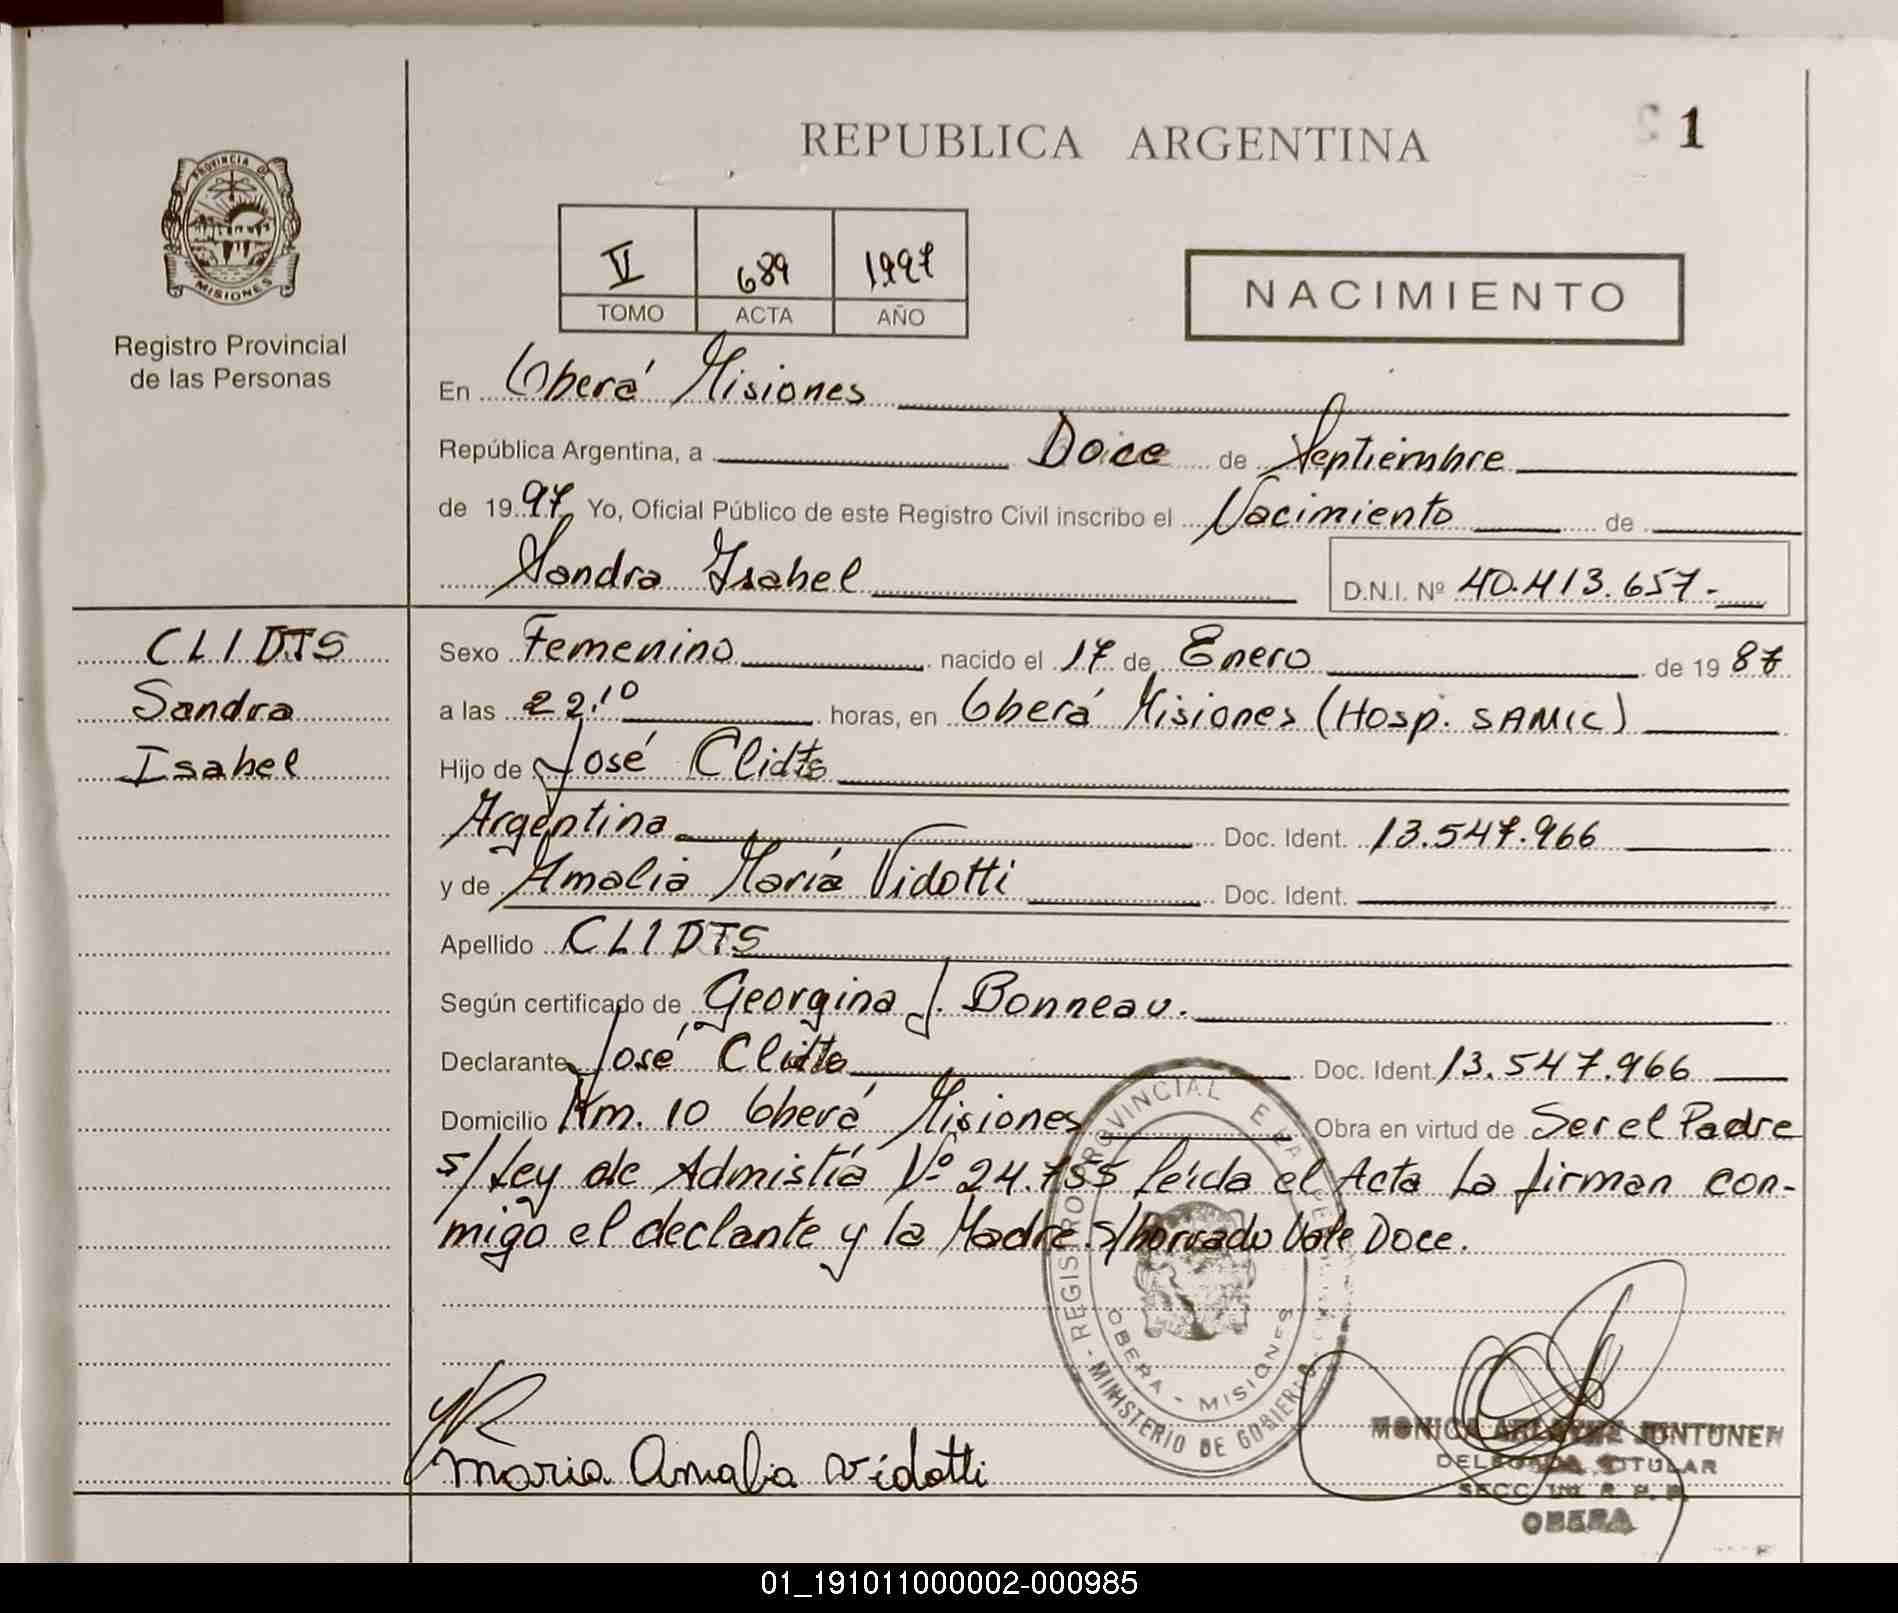 REPUBLICA ARGENTINA
1
PROVINCIA DE
MISIONES
Registro Provincial
de las Personas
V 689 1997
TOMO ACTA AÑO
NACIMIENTO
En Oberá Misiones
República Argentina, a Doce de Septiembre
de 1997 Yo, Oficial Público de este Registro Civil inscribo el Nacimiento de
Sandra Isabel D.N.I. Nº 40.413.657.-
CLIDTS
Sandra
Isabel
Sexo Femenino nacido el 17 de Enero de 1987
a las 22.10 horas, en Oberá Misiones (Hosp. SAMIC)
Hijo de José Clidts
Argentina Doc. Ident. 13.547.966
y de Amalia María Vidotti Doc. Ident.
Apellido CLIDTS
Según certificado de Georgina J. Bonneau.
Declarante José Doc. Ident. 13.547.966
Domicilio Km. 10 Oberá Misiones Obra en virtud de Ser el Padre
s/ Ley de Admistía Nº 24.755 leída el Acta La firman con-
migo el declante y la Madre. s/ borrado Vale Doce.
REGISTRO PROVINCIAL
OBERA - MISIONES
MINISTERIO DE GOBIERNO
maria Amalia vidotti
MONICA JUNTUNEN
DELEGADA TITULAR
OBERA
01_191011000002-000985